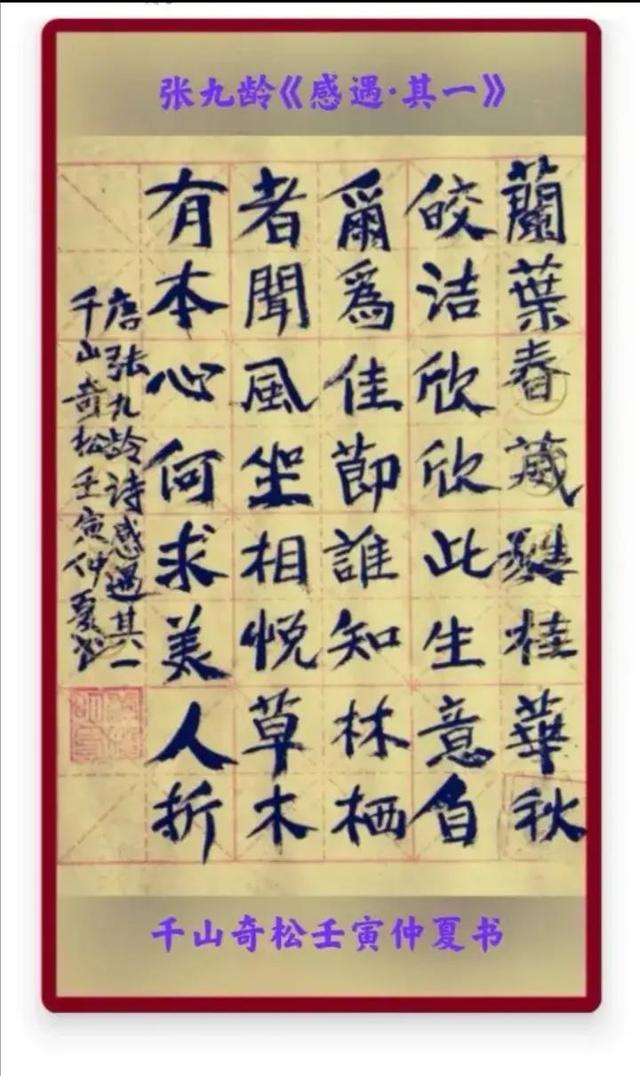 张九龄《感遇·其一》
蘭葉春葳蕤桂華秋
皎洁欣欣此生意自
爾為佳節誰知林栖
者聞風坐相悦草木
有本心何求美人折
唐张九龄诗感遇其一
千山奇松壬寅仲夏书
千山奇松壬寅仲夏书